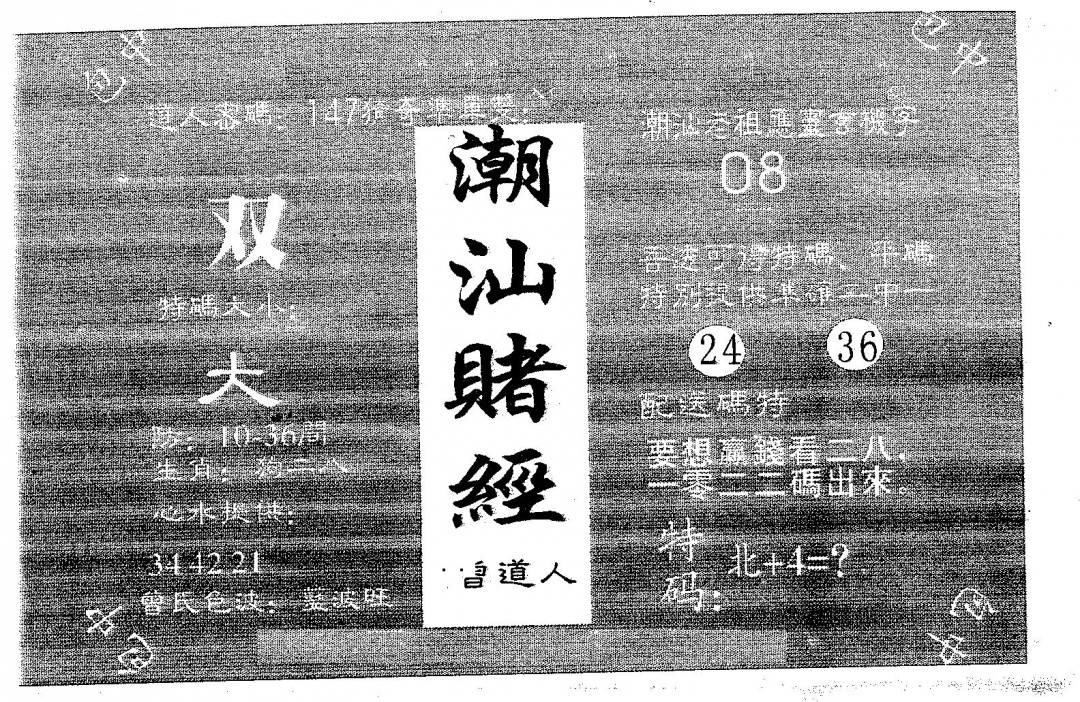 道人密碼：147猜奇準專獎，
双
特碼大小：
大
防：10-36間
生肖：狗二八
心水提供：
34 42 21
曾氏色波：藍波旺
潮汕賭經
曾道人
潮汕老祖應靈會機字
08
吾送可得特碼、平碼
特別提供準確二中一
24 36
配送碼特
要想贏錢看二八.
一零二二碼出來.
特码：
北+4=?